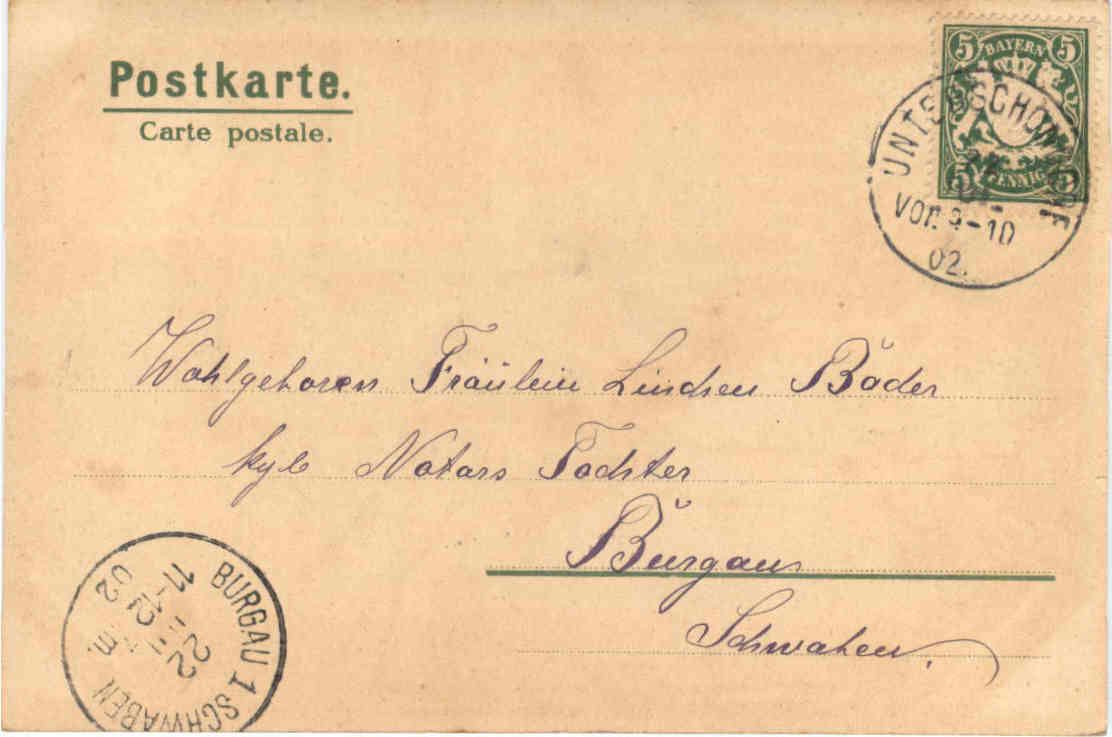 Postkarte.
Carte postale.
5 BAYERN 5
5 PFENNIG 5
UNTERSCHONDORF
VOR. 9-10
02.
Wohlgeboren Fräulein Linchen Bader
kgl Notars Tochter
Burgau
Schwaben.
BURGAU 1. SCHWABEN
11-12
22
02